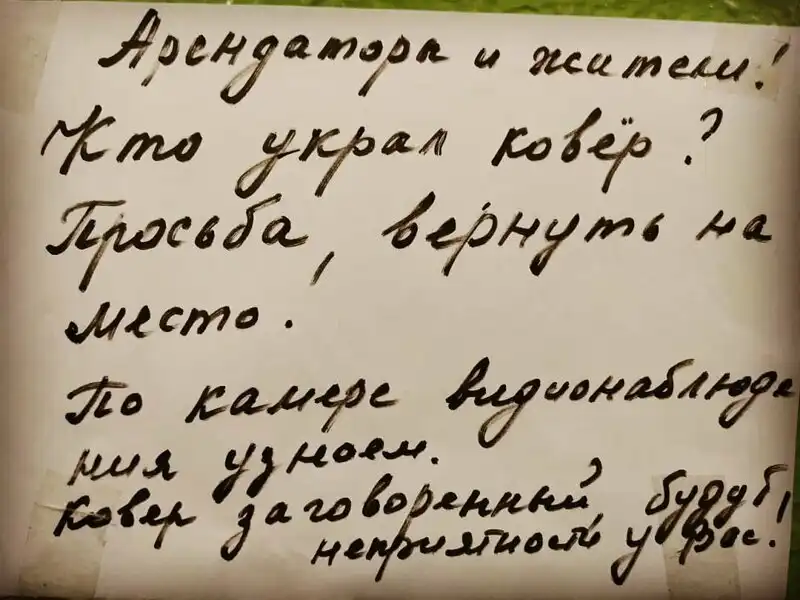 Арендаторы и жители!
Кто украл ковёр?
Просьба, вернуть на
место.
По камере видионаблюде
ния узнаем.
Ковер заговоренный, будут
неприятности у Вас!